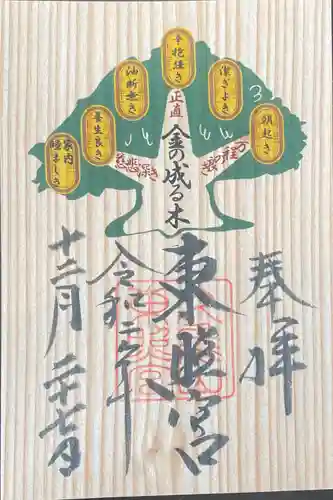 奉拝
朝起き
潔ぎよき
辛抱強き
油断無き
養生良き
家内
睦ましき
万程よき
正直
慈悲深き
金の成る木
東照宮
令和二年
十二月二十七日